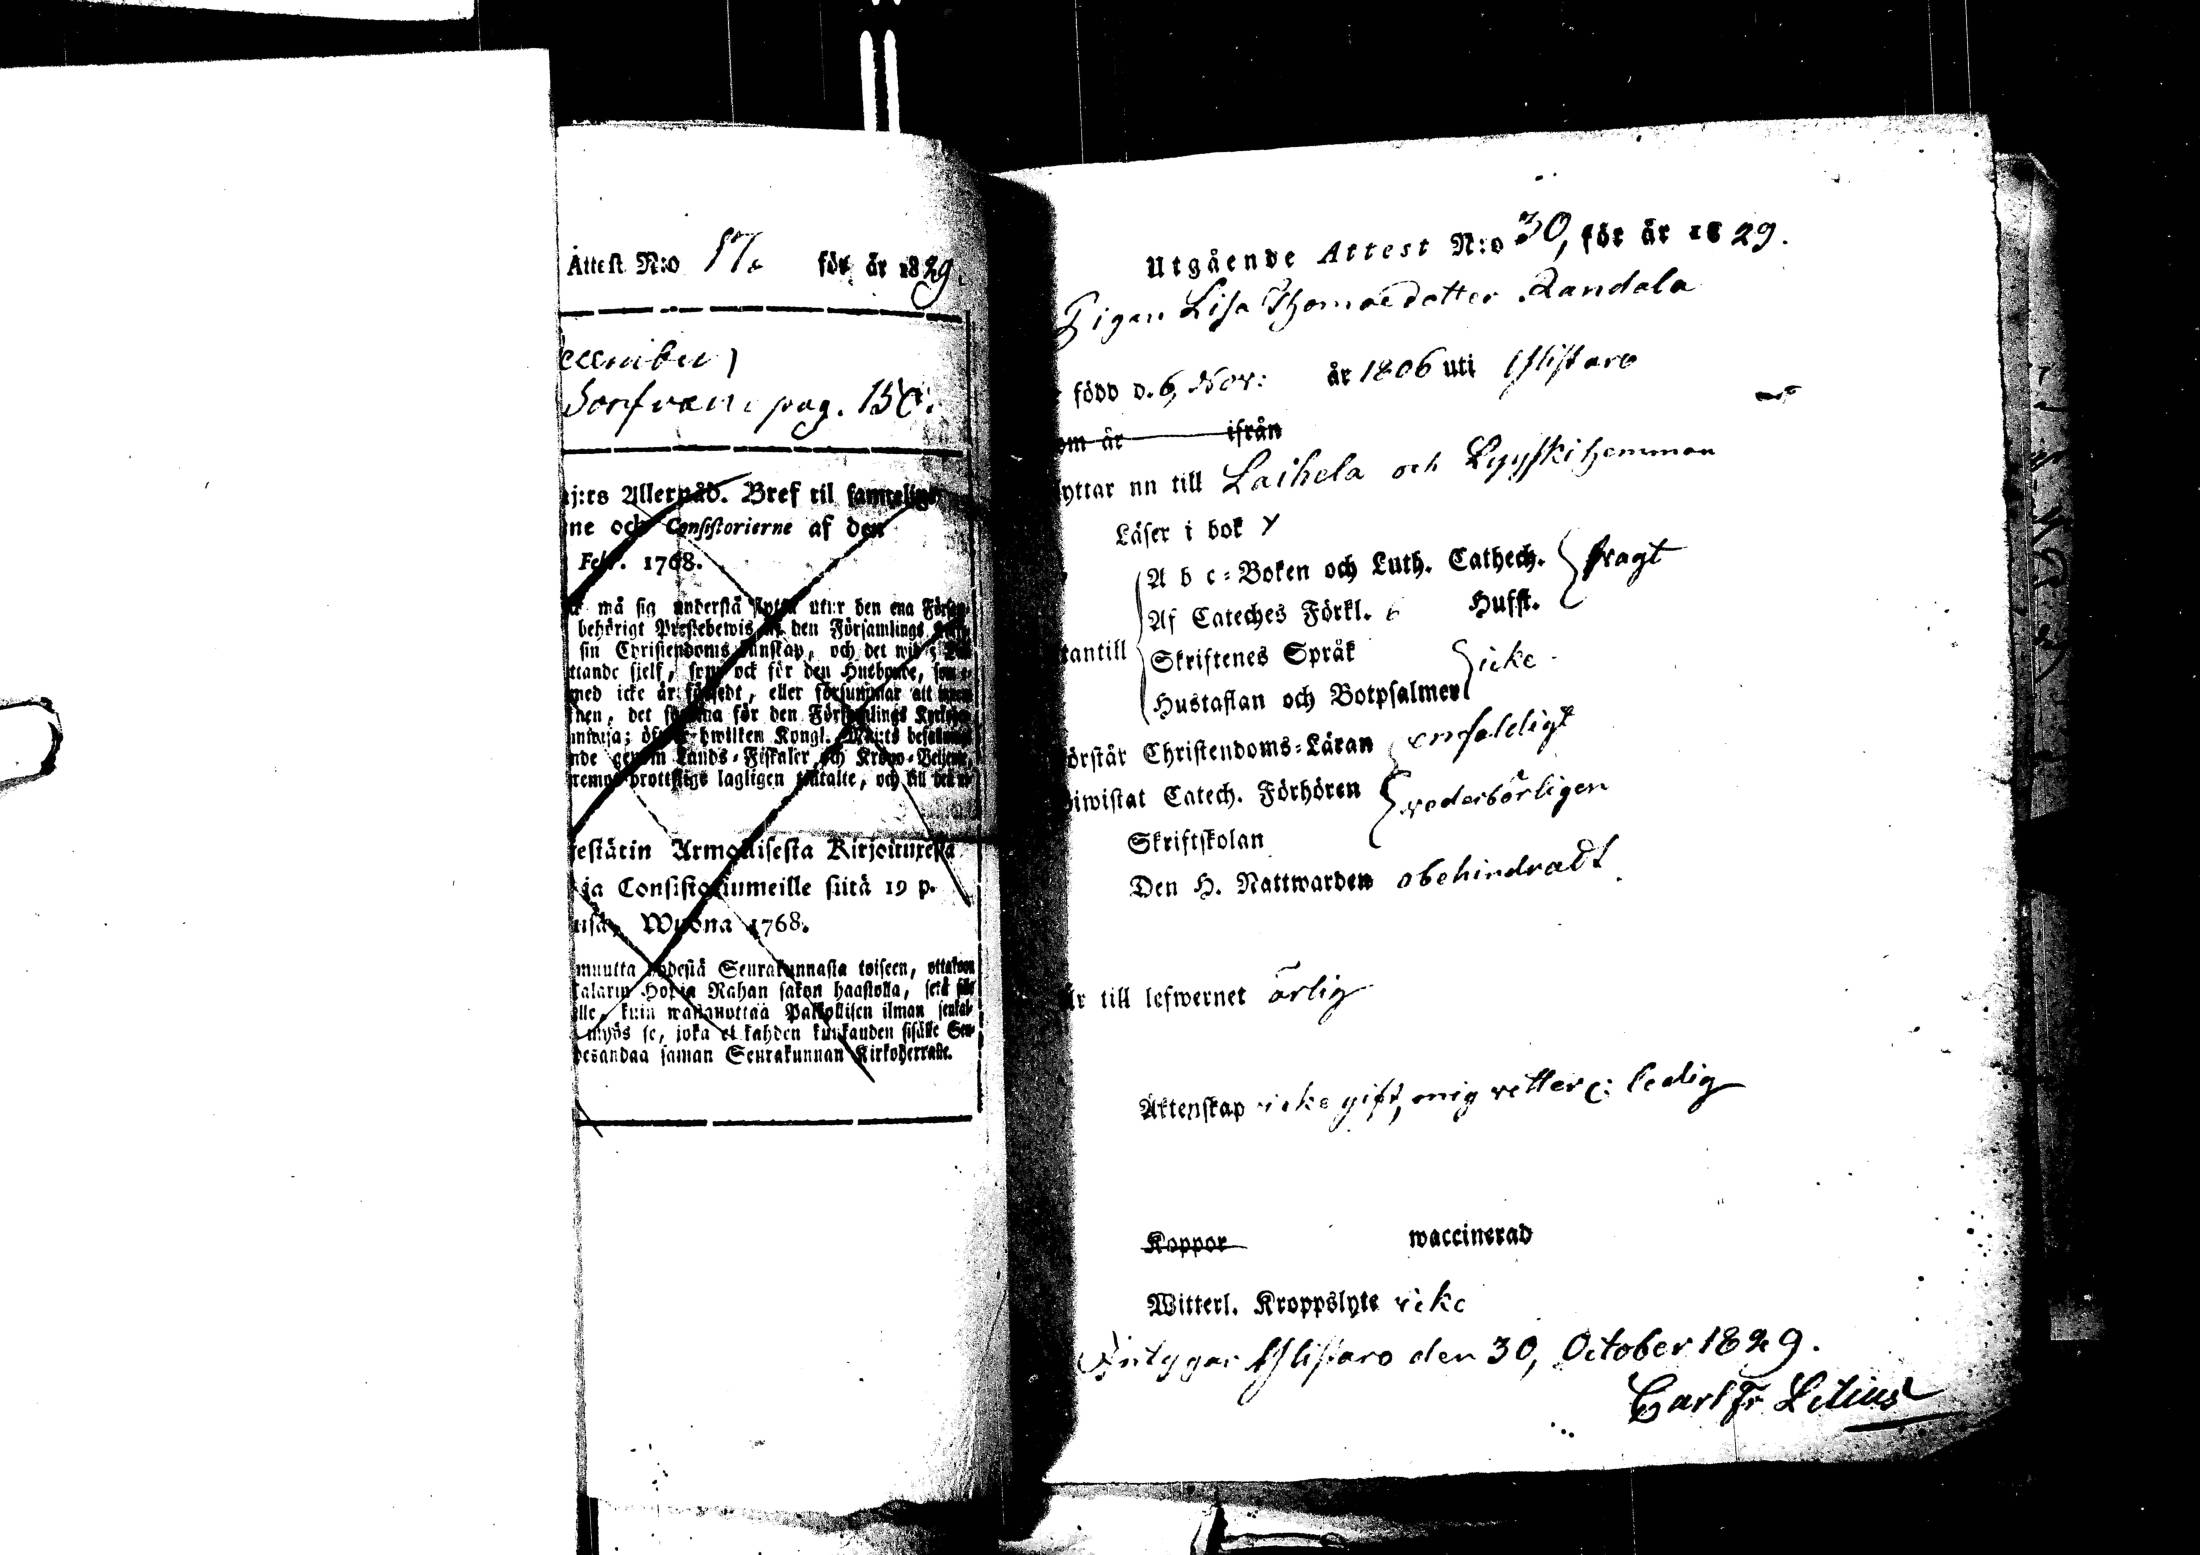 Attest N:o 17. för år 1829.
December)
Sorfvan pag. 150.
j:ts Allernåd. Bref til samtelige
ne och Consistorierne af den
Febr. 1768.
må sig understå flytta utur den ena Försam-
behörigt Prestebewis af den Församlings
sin Christendoms kunskap, och det wid
ttande sielf, som ock för den Husbonde, som e-
med icke är försedt, eller försummar att
hen, det samma för den Församlings Kyrkoh
nde genom Lands-Fiskaler och Krono-Betjente,
lagligen tiltalte, och till
estätin Armollisesta Kirjoituxesta
ja Consistoriumeille siitä 19 p.
Wuona 1768.
muutta yhdestä Seurakunnasta toiseen, ottakoon
Rahan sakon haastolla, sekä
kuin wastanottaa Palkollisen ilman
myös se, joka ei kahden kuukauden sisälle Seu-
saman Seurakunnan Kirkoherralle.
Utgående Attest N:o 30, för år 1829.
Pigan Lisa Thomaedotter Randala
född d. 6, Nov: år 1806 uti Ylistaro
om är ifrån
yttar nn till Laihela och Lyyski hemman
Läser i bok
A b c-Boken och Luth. Cathech. svagt
Af Cateches Förkl. Hufst.
tantill Skriftenes Språk icke
Hustaflan och Botpsalmer
örstår Christendoms-Läran enfaldigt
iwistat Catech. Förhören vederbörligen
Skriftskolan
Den H. Nattwarden obehindradt.
Är till lefwernet ärlig
Äktenskap icke gift, mig vetterl: ledig
Koppor waccinerad
Witterl. Kroppslyte icke
Intygar Ylistaro den 30, October 1829.
Carl Fr Letius